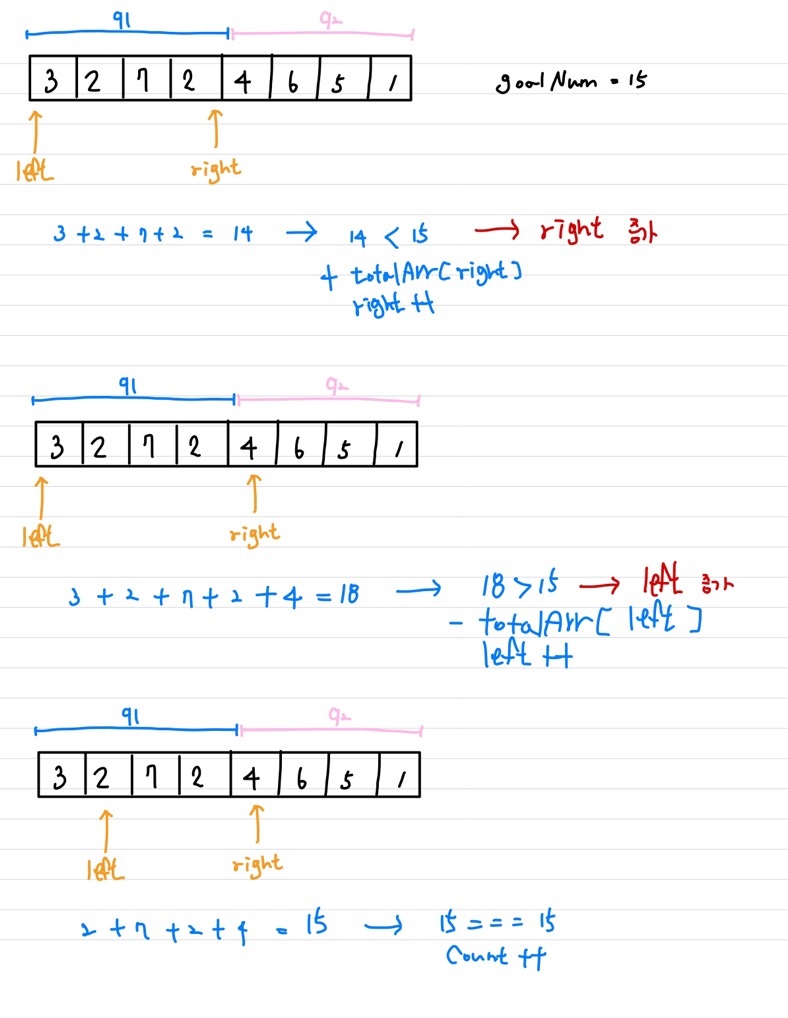 q1 q2
3 2 7 2 4 6 5 1 goalNum = 15
left right
3 + 2 + 7 + 2 = 14 → 14 < 15 → right 증가
+ totalArr[right]
right ++
q1 q2
3 2 7 2 4 6 5 1
left right
3 + 2 + 7 + 2 + 4 = 18 → 18 > 15 → left 증가
- totalArr[left]
left ++
q1 q2
3 2 7 2 4 6 5 1
left right
2 + 7 + 2 + 4 = 15 → 15 === 15
Count ++